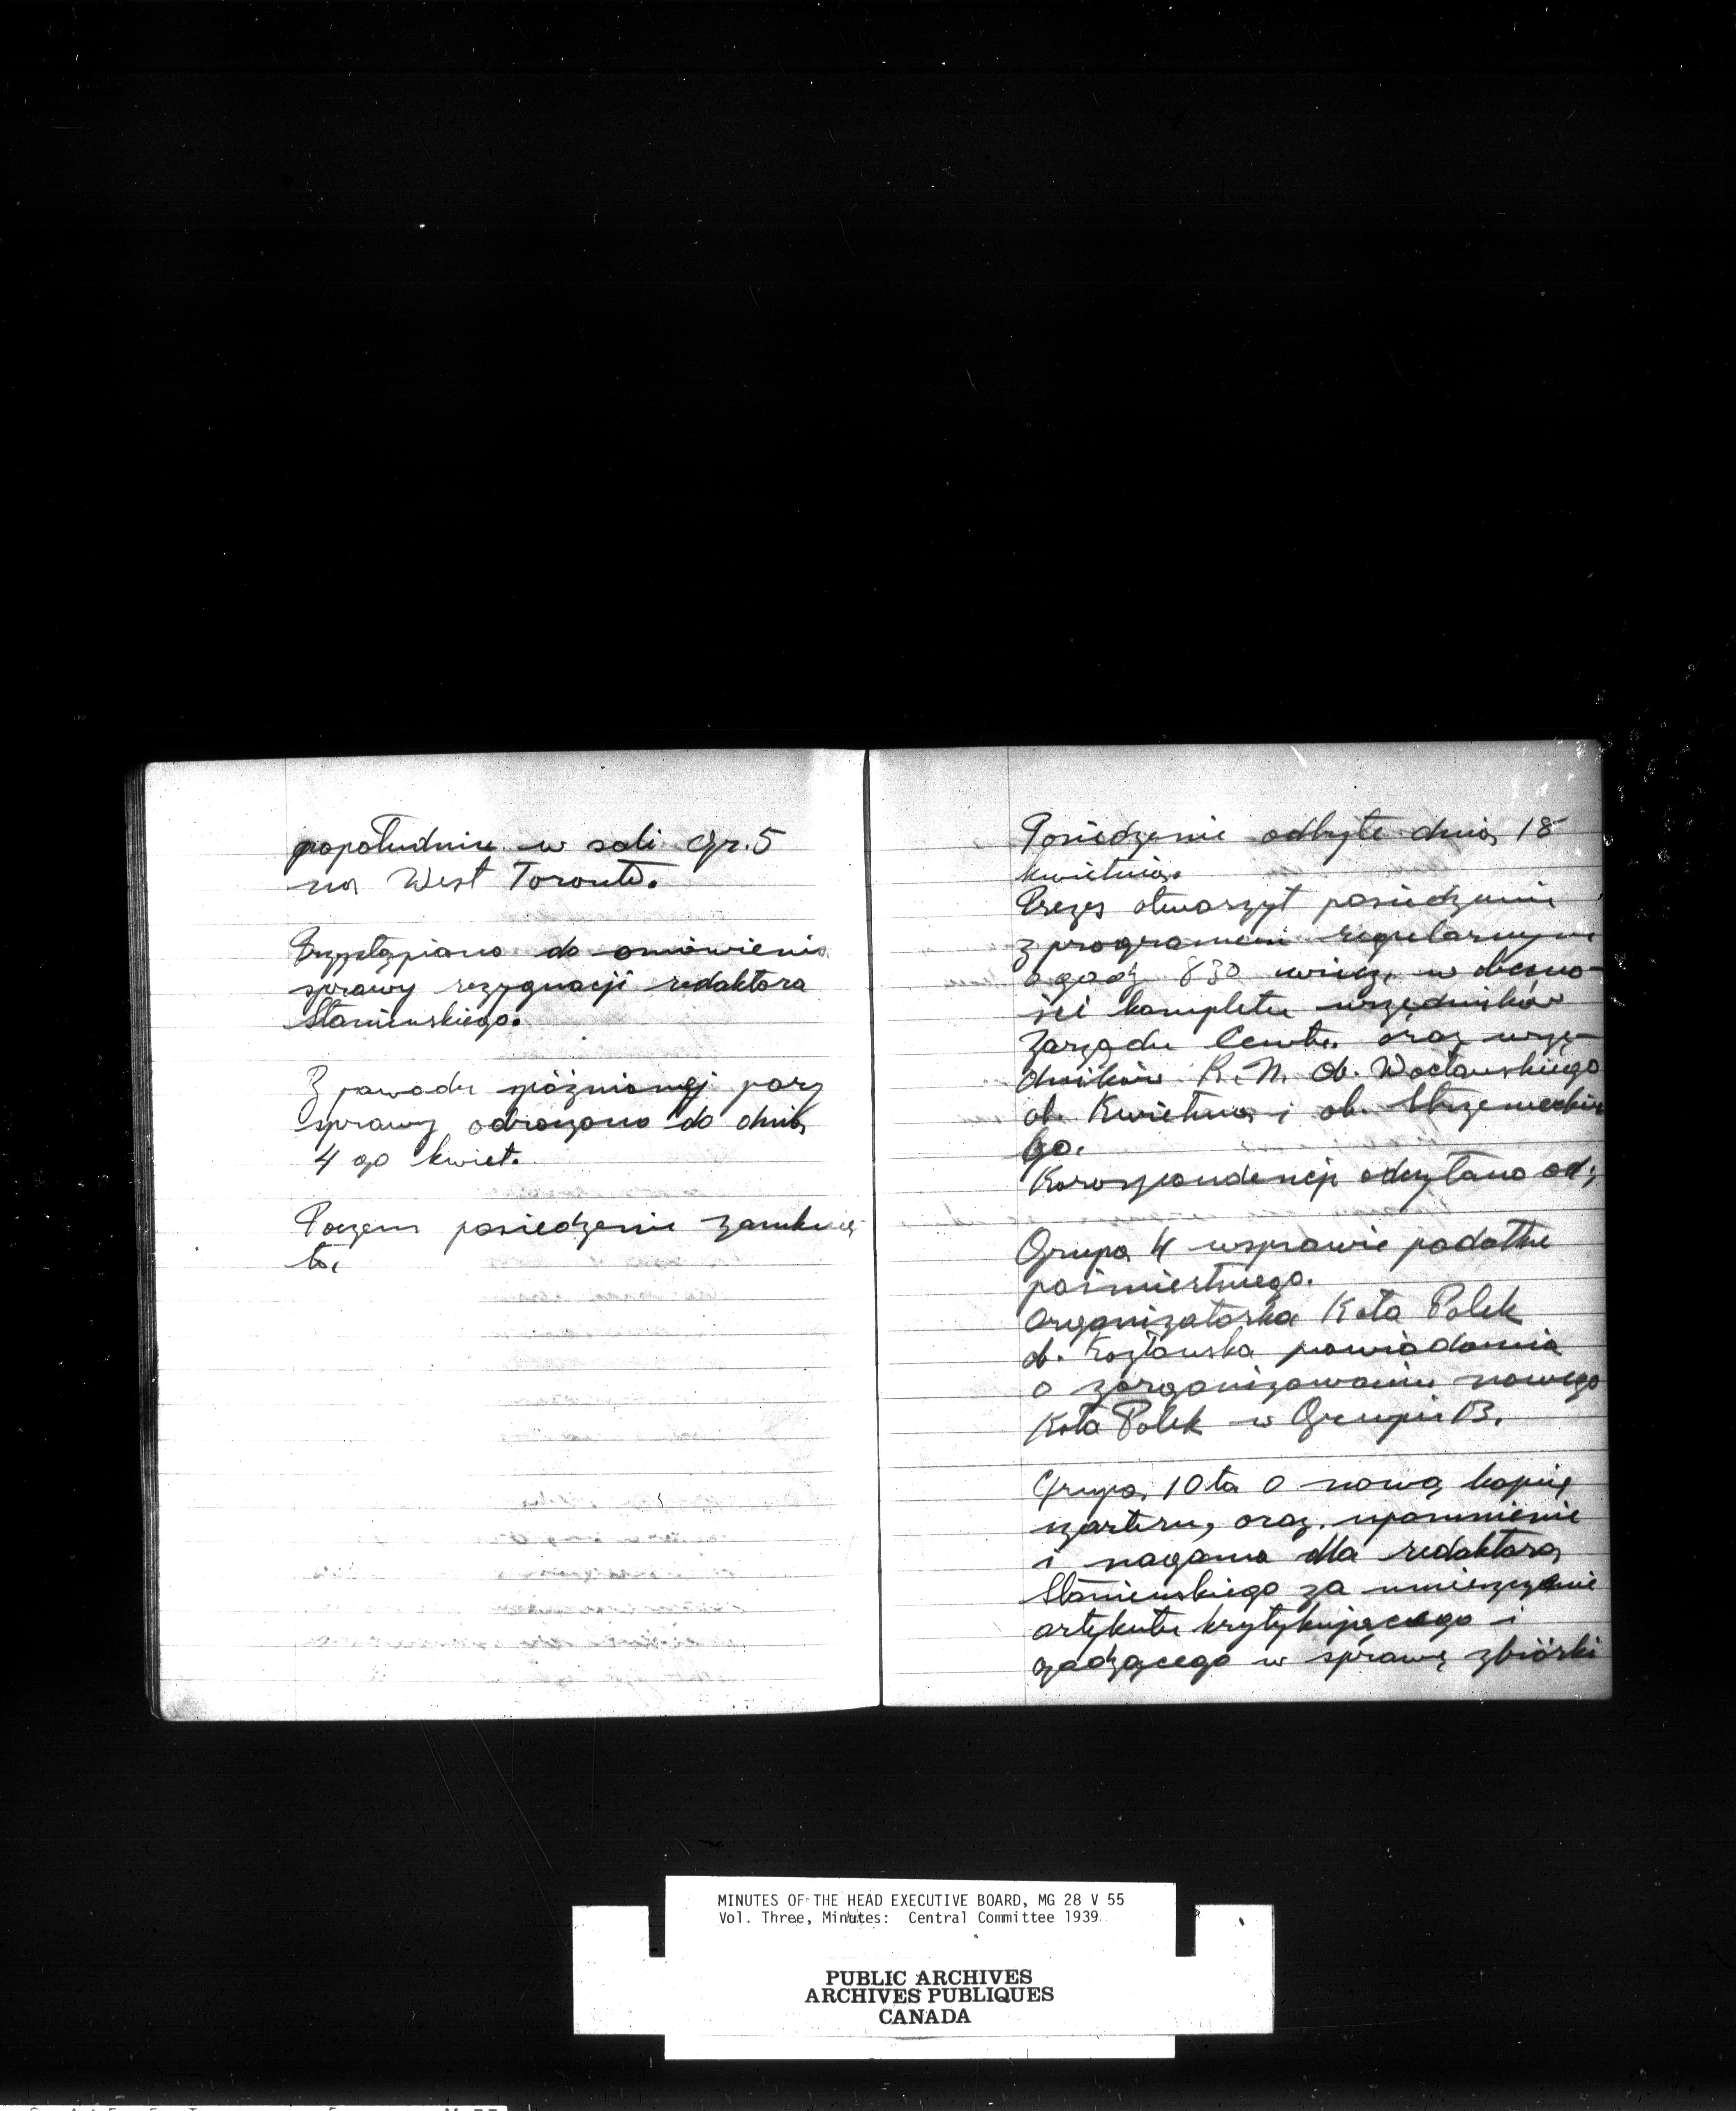 popołudniu w sali Gr. 5
na West Toronto.
Przystąpiono do omówienia
sprawy rezygnacji redaktora
Staniewskiego.
Z powodu spóźnionej pory
sprawy odroczono do dnia
4 go kwiet.
Poczem posiedzenie zamknię-
to.
Posiedzenie odbyte dnia 18
kwietnia.
Prezes otworzył posiedzenie
z programem regularnym
o godz 830 wiecz, w obecno-
ści kompletu urzędników
Zarządu Centr. oraz urzę-
dników R. N. ob. Wocławskiego
ob. Kwietnia i ob. Strzemeckie
go.
Korospondencje odczytano od;
Grupa 4 wsprawie podatku
pośmiertnego.
Organizatorka Koła Polek
ob. Kozłowska powiadamia
o zorganizowaniu nowego
Koła Polek w Grupie 13.
Grupa 10ta O nową kopię
czarteru, oraz upomnienie
i nagana dla redaktora
Staniewskiego za umieszczenie
artykułu krytykującego i
godzącego w sprawę zbiórki
MINUTES OF THE HEAD EXECUTIVE BOARD, MG 28 V 55
Vol. Three, Minutes: Central Committee 1939
PUBLIC ARCHIVES
ARCHIVES PUBLIQUES
CANADA